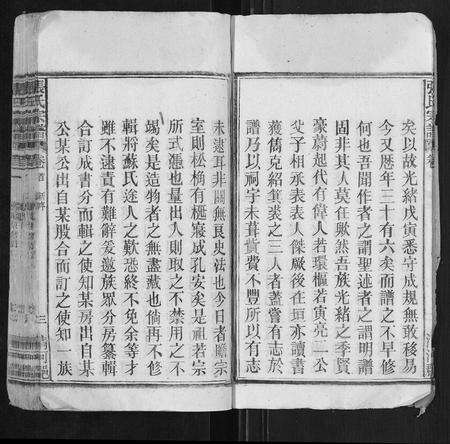 張氏宗譜
矣以故光緒戊寅悉守成規無敢移易
今又歷年三十有六矣而譜之不早修
何也吾聞作者之謂聖述者之謂明譜
固非其人莫任歟然吾族光緒之季賢
豪蔚起代有偉人者環樞若寅亮二公
父子相承表表人傑厥後在垣亦讀書
獲雋克紹箕裘之三人者蓋嘗有志於
譜乃以祠宇未葺貲費不豐所以有志
未逮耳非關無良史法也今日者瞻宗
室則松桷有梴寢成孔安矣是祖若宗
所式憑也量出入則取之不禁用之不
竭矣是造物者之無盡藏也倘再不修
輯將蘇氏途人之歎恐終不免余等才
雖不逮責有難辭爰邀族眾分房纂輯
合訂成書分而輯之使知某房出自某
公某公出自某股合而訂之使知一族
張氏宗譜
卷首
三